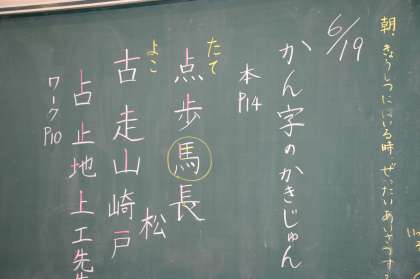 朝、きょうしつにいる時、ぜったいあいさつする
6/19
かん字のかきじゅん
本P14
たて
点歩馬長
よこ
古走山崎戸
松
占止地上工先生
ワークP10